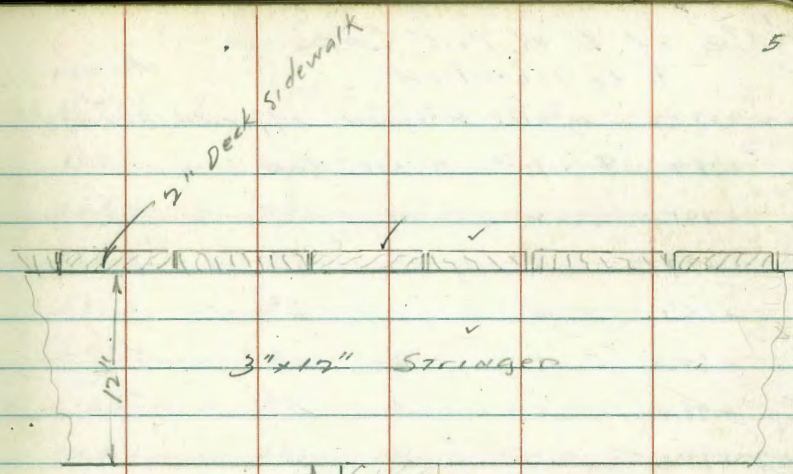 5
2" Deck Sidewalk
12"
3"x12" Stringer